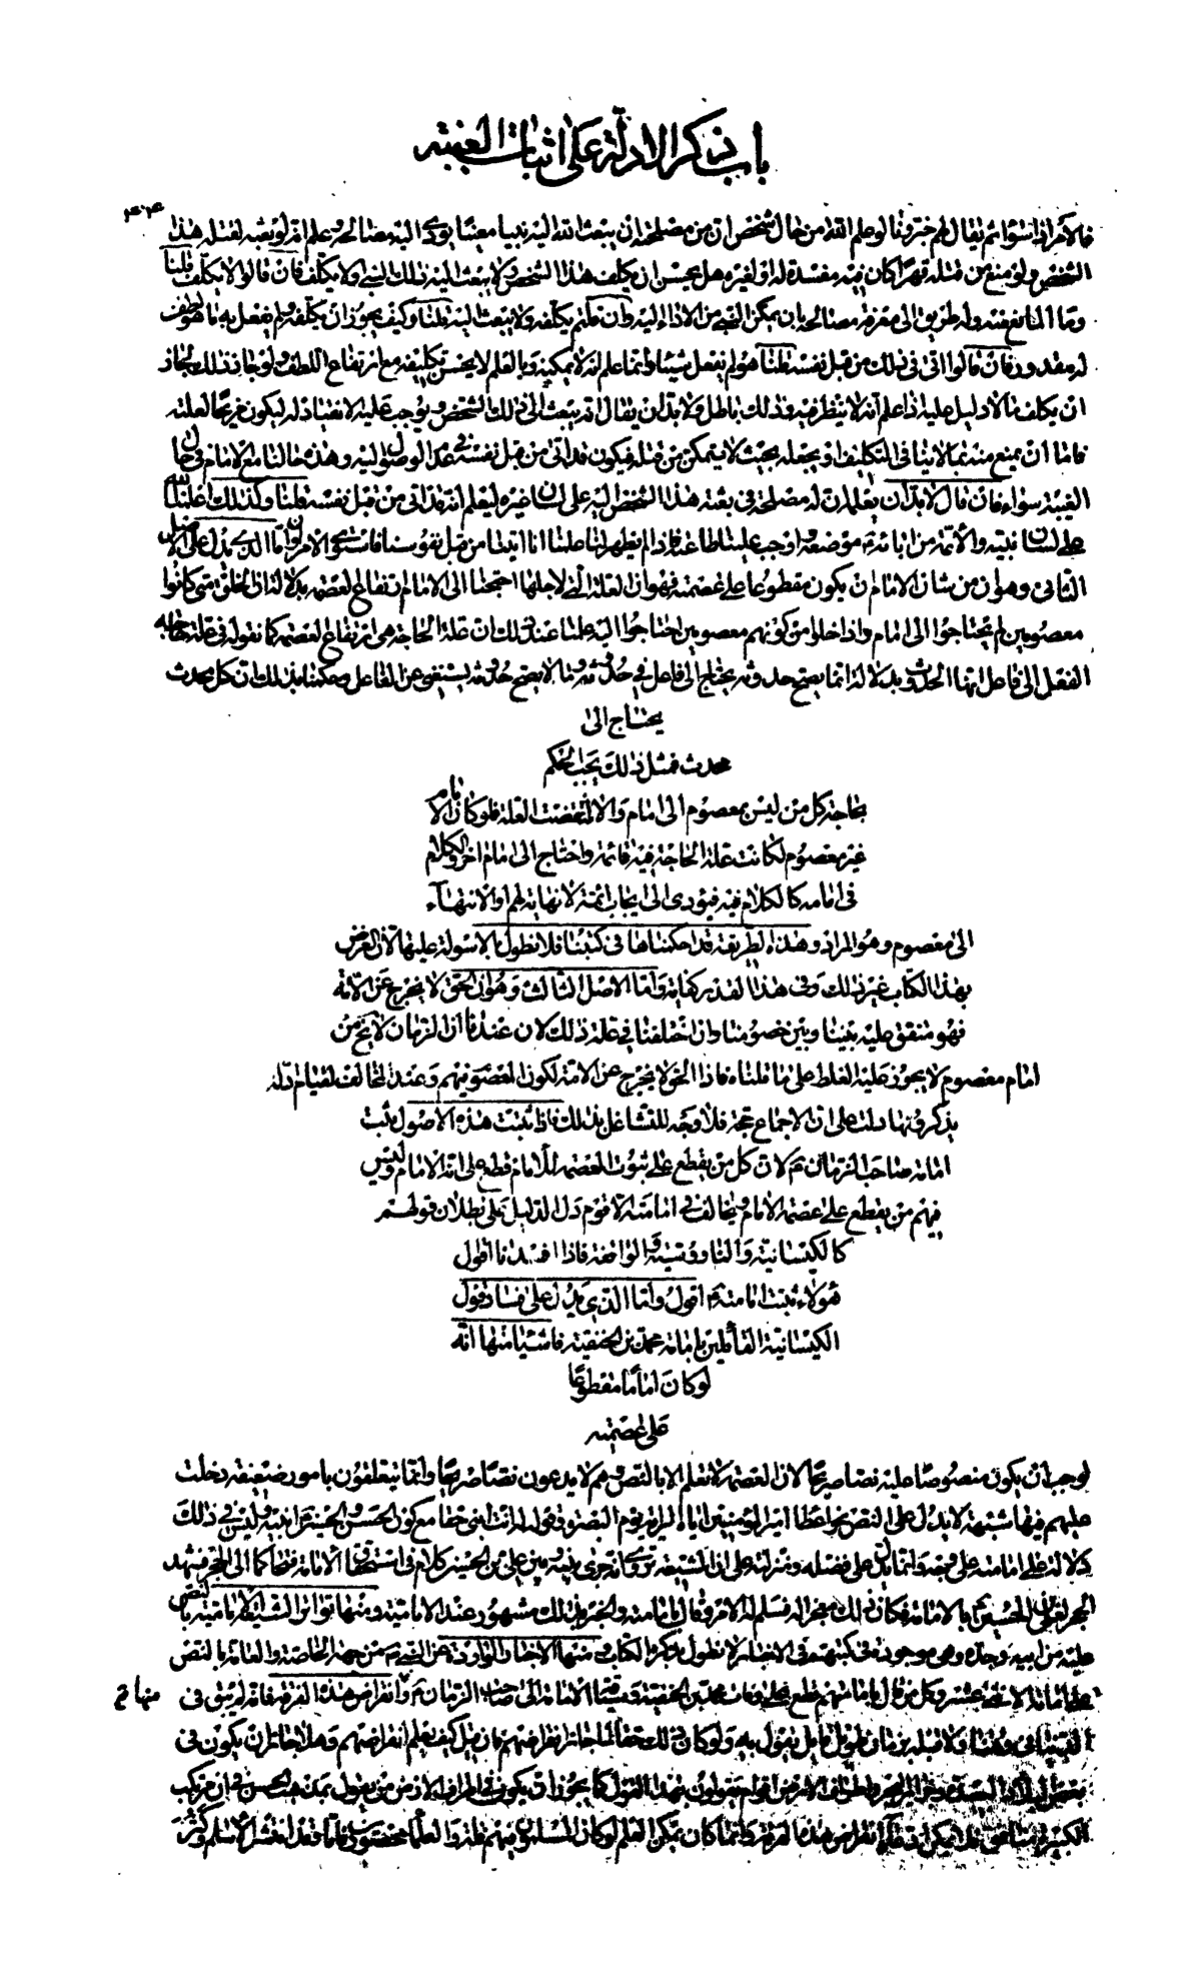 باب ذكر الادلة على اثبات الغيبة
فالامران سواء ثم يقال لهم خبرونا لو علم الله من حال شخص ان من مصلحته ان يبعث الله اليه نبيا معينا يودي اليه مصالحه وعلم انه لو بعثه لقتله هذا
الشخص ولو منع من قتله قهرا كان فيه مفسدة له او لغيره هل يحسن ان يكلف هذا الشخص ولا يبعث اليه ذلك النبي او لا يكلف فان قالوا لا يكلف قلنا
وما المانع منه وله طريق الى معرفة مصالحه بان يمكن النبي من الاداء اليه وان قلتم يكلفه ولا يبعث اليه قلنا وكيف يجوز ان يكلفه ولم يفعل به ما هو لطف
له مقدور فان قالوا اتى في ذلك من قبل نفسه قلنا هو لم يفعل شيئا وانما علم انه لا يمكنه وبالعلم لا يحسن تكليفه مع ارتفاع اللطف ولو جاز ذلك لجاز
ان يكلف ما لا دليل عليه اذا علم انه لا ينظر فيه وذلك باطل ولا بد ان يقال انه يبعث الى ذلك الشخص ويوجب عليه الانقياد له ليكون مزيحا لعلته
فاما ان يمنع منه بما لا ينافي التكليف او يجعله بحيث لا يتمكن من قتله فيكون قد اتى من قبل نفسه في عدم الوصول اليه وهذه حالنا مع الامام في حال
الغيبة سواء فان قال لا بد ان يعلمه ان له مصلحة في بعثة هذا الشخص اليه على لسان غيره ليعلم انه قد اتى من قبل نفسه قلنا وكذلك اعلمنا الله
على لسان نبيه والائمة من ابائه موضعه واوجب علينا طاعته فاذا لم يظهر لنا علمنا انا اتينا من قبل نفوسنا فاستوى الامران واما الذي يدل على الاصل
الثاني وهو ان من شان الامام ان يكون مقطوعا على عصمته فهو ان العلة التي لاجلها احتجنا الى الامام ارتفاع العصمة بدلالة ان الخلق متى كانوا
معصومين لم يحتاجوا الى امام واذا خلوا من كونهم معصومين احتاجوا اليه علمنا عند ذلك ان علة الحاجة هي ارتفاع العصمة كما نقوله في علة حاجة
الفعل الى فاعل انها الحدوث بدلالة انما يصح حدوثه يحتاج الى فاعل في حدوثه وما لا يصح حدوثه يستغني عن الفاعل وحكمنا بذلك ان كل محدث
يحتاج الى
محدث فمثل ذلك يجب الحكم
بحاجة كل من ليس بمعصوم الى امام والا انتقضت العلة فلو كان الامام
غير معصوم لكانت علة الحاجة فيه قائمة واحتاج الى امام اخر والكلام
في امامه كالكلام فيه فيؤدي الى ايجاب ائمة لا نهاية لهم او الانتهاء
الى معصوم وهو المراد وهذه الطريقة قد احكمناها في كتبنا فلا نطول بالاسولة عليها لان الغرض
بهذا الكتاب غير ذلك وفي هذا القدر كفاية واما الاصل الثالث وهو ان الحق لا يخرج عن الامة
فهو متفق عليه بيننا وبين خصومنا وان اختلفنا في علة ذلك لان عندنا ان الزمان لا يخ من
امام معصوم لا يجوز عليه الغلط على ما قلناه فاذا الحق لا يخرج عن الامة لكون المعصوم فيهم وعند المخالف لقيام ادلة
يذكرونها دلت على ان الاجماع حجة فلا وجه للتشاغل بذلك فاذا ثبتت هذه الاصول ثبت
امامة صاحب الزمان ع لان كل من يقطع على ثبوت العصمة للامام قطع على انه الامام وليس
فيهم من يقطع على عصمة الامام ويخالف في امامته الا قوم دل الدليل على بطلان قولهم
كالكيسانية والناووسية والواقفة فاذا افسدنا اقول
هؤلاء ثبت امامته ع اقول واما الذي يدل على فساد قول
الكيسانية القائلين بامامة محمد بن الحنفية فاشياء منها انه
لو كان اماما مقطوعا
على عصمته
لوجب ان يكون منصوصا عليه نصا صريحا لان العصمة لا تعلم الا بالنص وهم لا يدعون نصا صريحا وانما يتعلقون بامور ضعيفة دخلت
عليهم فيها شبهة لا يدل على النص نحو اعطاء امير المؤمنين اياه الراية يوم البصرة وقوله له انت ابني حقا مع كون الحسن والحسين ع ابنيه وليس في ذلك
دلالة على امامته على وجه وانما يدل على فضله ومنزلته على ان الشيعة تروي انه جرى بينه وبين علي بن الحسين كلام في استحقاق الامامة فتحاكما الى الحجر فشهد
الحجر لعلي بن الحسين ع بالامامة فكان ذلك معجزا له فسلم له الامر وقال بامامته والخبر بذلك مشهور عند الامامية ومنها تواتر الشيعة الامامية بالنص
عليه من ابيه وجده وهي موجودة في كتبهم في الاخبار لا نطول بذكره الكتاب ومنها الاخبار الواردة عن النبي ص من جهة الخاصة والعامة بالنص
على امامة الاثني عشر وكل من قال بامامتهم قطع على وفات محمد بن الحنفية وسياقة الامامة الى صاحب الزمان ع وانقراض هذه الفرقة فانه لم يبق في
منها
ولا قبله بزمان طويل قايل يقول به ولو كان ذلك حقا لما جاز انقراضهم فان قيل كيف يعلم انقراضهم وهلا جاز ان يكون في
بعض البلاد البعيدة وجزائر البحر واطراف الارض اقوام يقولون بهذا القول كما يجوز ان يكون في اطراف الارض من يقول بمذهب الحسن في ان مرتكب
الكبيرة منافق فلا يمكن ادعاء انقراض هذه الفرقة وانما كان يمكن العلم لو كان المسلمون فيهم قلة والعلماء محصورين فاما وقد انتشر الاسلام وكثر